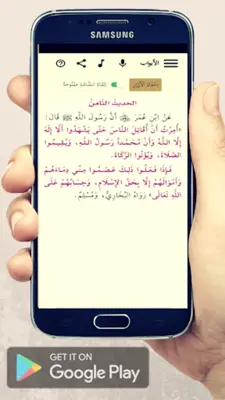 SAMSUNG
الأبواب
إخفاء الأزرار
إبقاء الشاشة مفتوحة
الحديث الثامن
عَنْ ابْنِ عُمَرَ ﷺ أَنَّ رَسُولَ اللَّهِ ﷺ قَالَ:
«أُمِرْتُ أَنْ أُقَاتِلَ النَّاسَ حَتَّى يَشْهَدُوا أَنْ لَا إلَهَ
إلَّا اللَّهُ وَأَنَّ مُحَمَّدًا رَسُولُ اللَّهِ، وَيُقِيمُوا
الصَّلَاةَ، وَيُؤْتُوا الزَّكَاةَ.
فَإِذَا فَعَلُوا ذَلِكَ عَصَمُوا مِنِّي دِمَاءَهُمْ
وَأَمْوَالَهُمْ إلَّا بِحَقِّ الْإِسْلَامِ، وَحِسَابُهُمْ عَلَى
اللَّهِ تَعَالَى» رَوَاهُ الْبُخَارِيُّ، وَمُسْلِمٌ.
GET IT ON
Google Play